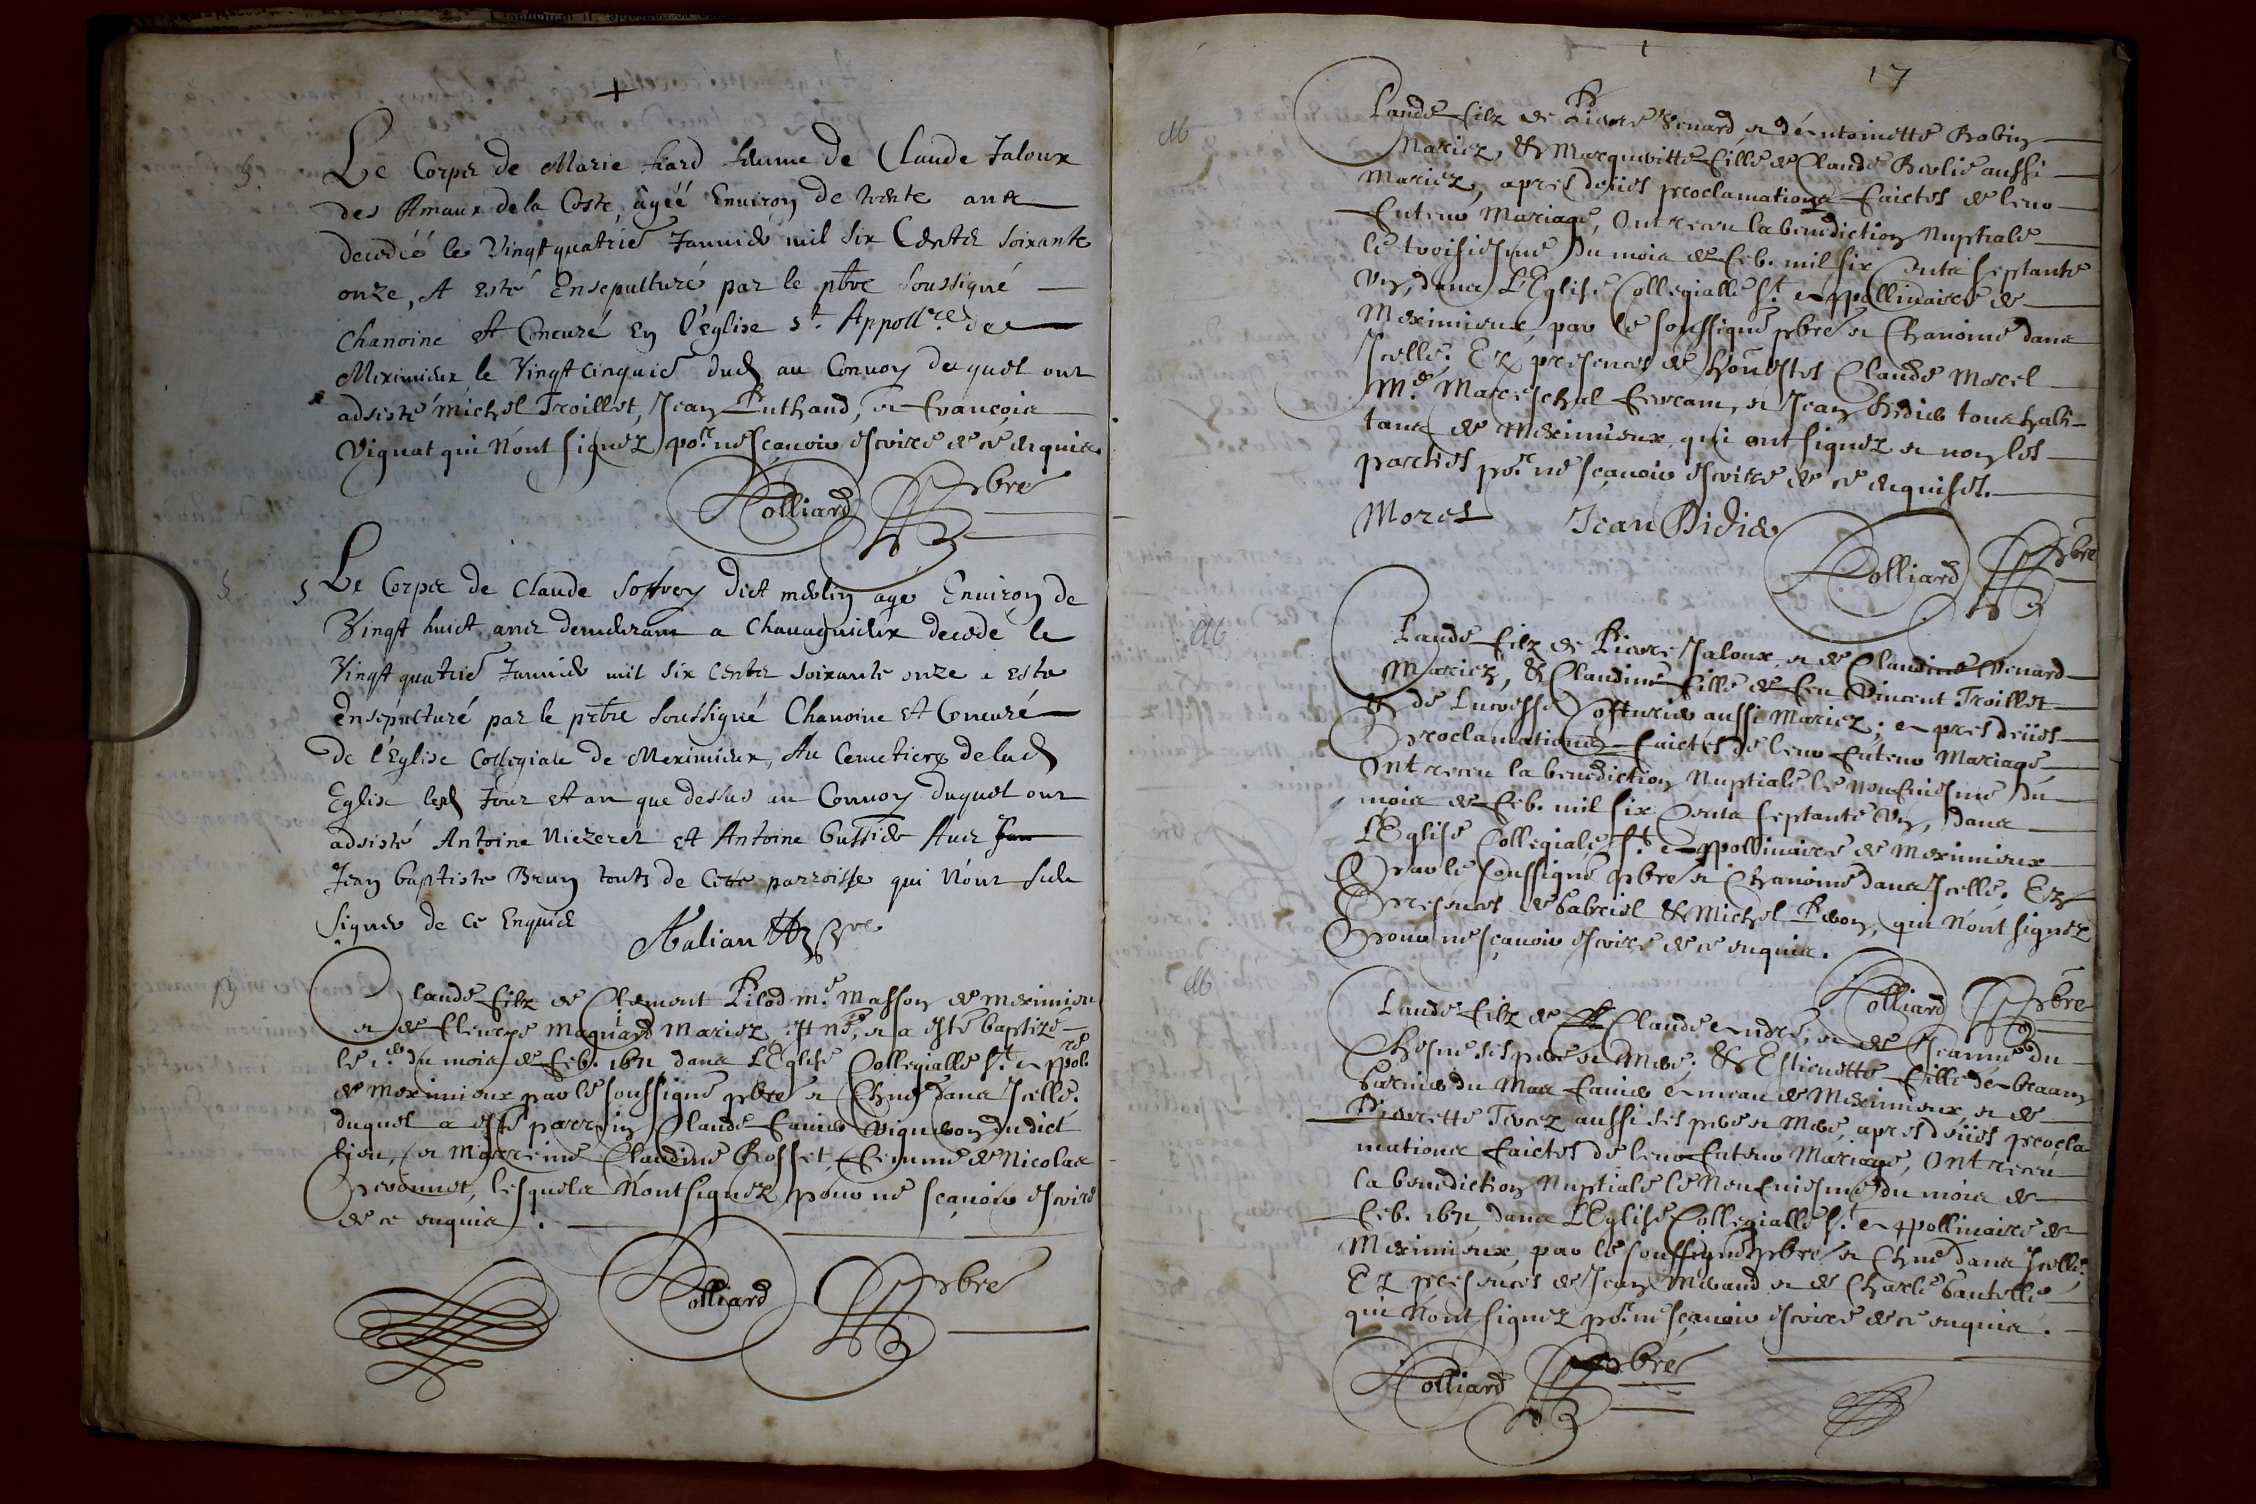 S.
Le Corps de Marie fiard femme de Claude Jaloux
des Amaux de la Coste, âgéé Enuiron de trente ans
decedéé le Vingt quatrie Januier mil six Cents soixante
onze, A esté Ensepulturé par le pbre soussigné
Chanoine et Concuré En l'eglise St. Appoll.re de
Meximieux le Vingt cinquie dud au Conuoy duquel ont
adsisté Michel Troillet, Jean Puthaud, et François
Vignat qui n'ont signez po.r ne sçauoir escrire de ce enquis.
Rolliard pbre
S
Le Corps de Claude Soffrey dict merlin agé Enuiron de
Vingt huict ans demeurant a Chauagnieux decedé le
Vingt quatrie Januier mil six Cents soixante onze a esté
Ensépulturé par le prbre soussigné Chanoine et Concuré
de l'Eglise Collegiale de Meximieux, Au Cemetiere de lad
Eglise lesd Jour et an que dessus au Conuoy duquel ont
adsisté Antoine Niezeret et Antoine Guttier Auec
Jean baptiste Brun touts de Cette parroisse qui n'ont sceu
signer de Ce Enquis
pbre
B
Claude filz de Clement Pilod m.e Masson de Meximieu
et de fleurye Magniard Mariez, Est né, et a esté baptizé
le 1.er du mois de feb. 1671 dans L'Eglise Collegialle S.t Appol.re
de Meximieux par le soussigné pbre et Chne dans Jcelle.
duquel a esté parrein Claude fauier Vigneron dudict
lieu, et Marreine Claudine Rosset, femme de Nicolas
Peronnet, lesquels n'ont signez pour ne sçauoir escrire
de ce enquis.
Rolliard pbre
17
M
Claude filz de Pierre Venard et d'Antoinette Robin
Mariez, & Margueritte fille de Claude Berlie aussi
Mariez, apres deües proclamations faictes de leur
futeur Mariage, Ont receu la benediction Nuptiale
le troisiesme du mois de feb. mil six Cents septante
Vn, dans L'Eglise Collegialle S.t Appollinaire de
Meximieux par le soussigné pbre et Chanoine dans
Jcelle. Ez presences de honestes Claude Morel
M.e Mareschal ferrant, et Jean Didier tous habi-
tans de Meximieux, qui ont signez et non les
parties po.r ne sçauoir escrire de ce enquises.
Morel Jean Didier
Rolliard pbre
M
Claude filz de Pierre Jaloux, et de Claudine Venard
Mariez, & Claudine fille de feu Vincent Troillet
& de Lucresse Cofturier aussi Mariez; Apres deües
Proclamations faictes de leur futeur Mariage,
Ont receu la benediction Nuptiale le Neufuiesme du
mois de feb. mil six Cents septante Vn, dans
L'Eglise Collegiale S.t Appollinaire de Meximieux
Par le soussigné pbre et Chanoine dans Jcelle. Ez
Presences de Gabriel & Michel Peron, qui n'ont signez
Pour ne sçauoir escrire de ce enquis.
Rolliard pbre
M
Claude filz de Claude Andre, et de Jeanne du
Chesne ses pere et Mere. & Estienette fille d'Abraam
Garnier du Mas fauier Ameau de Meximieux et de
Pierrette Tercez aussi ses pere et Mere, apres deües procla
mations faictes de leur futeur Mariage, Ont receu
la benediction Nuptiale le Neufuiesme du mois de
feb. 1671 dans L'Eglise Collegialle S.t Appollinaire de
Meximieux, par le soussigné pbre et Chne dans Jcelle.
Ez presences de Jean Meraud et de Charle Gautellie
qui n'ont signez po.r ne sçauoir escrire de ce enquis.
Rolliard pbre